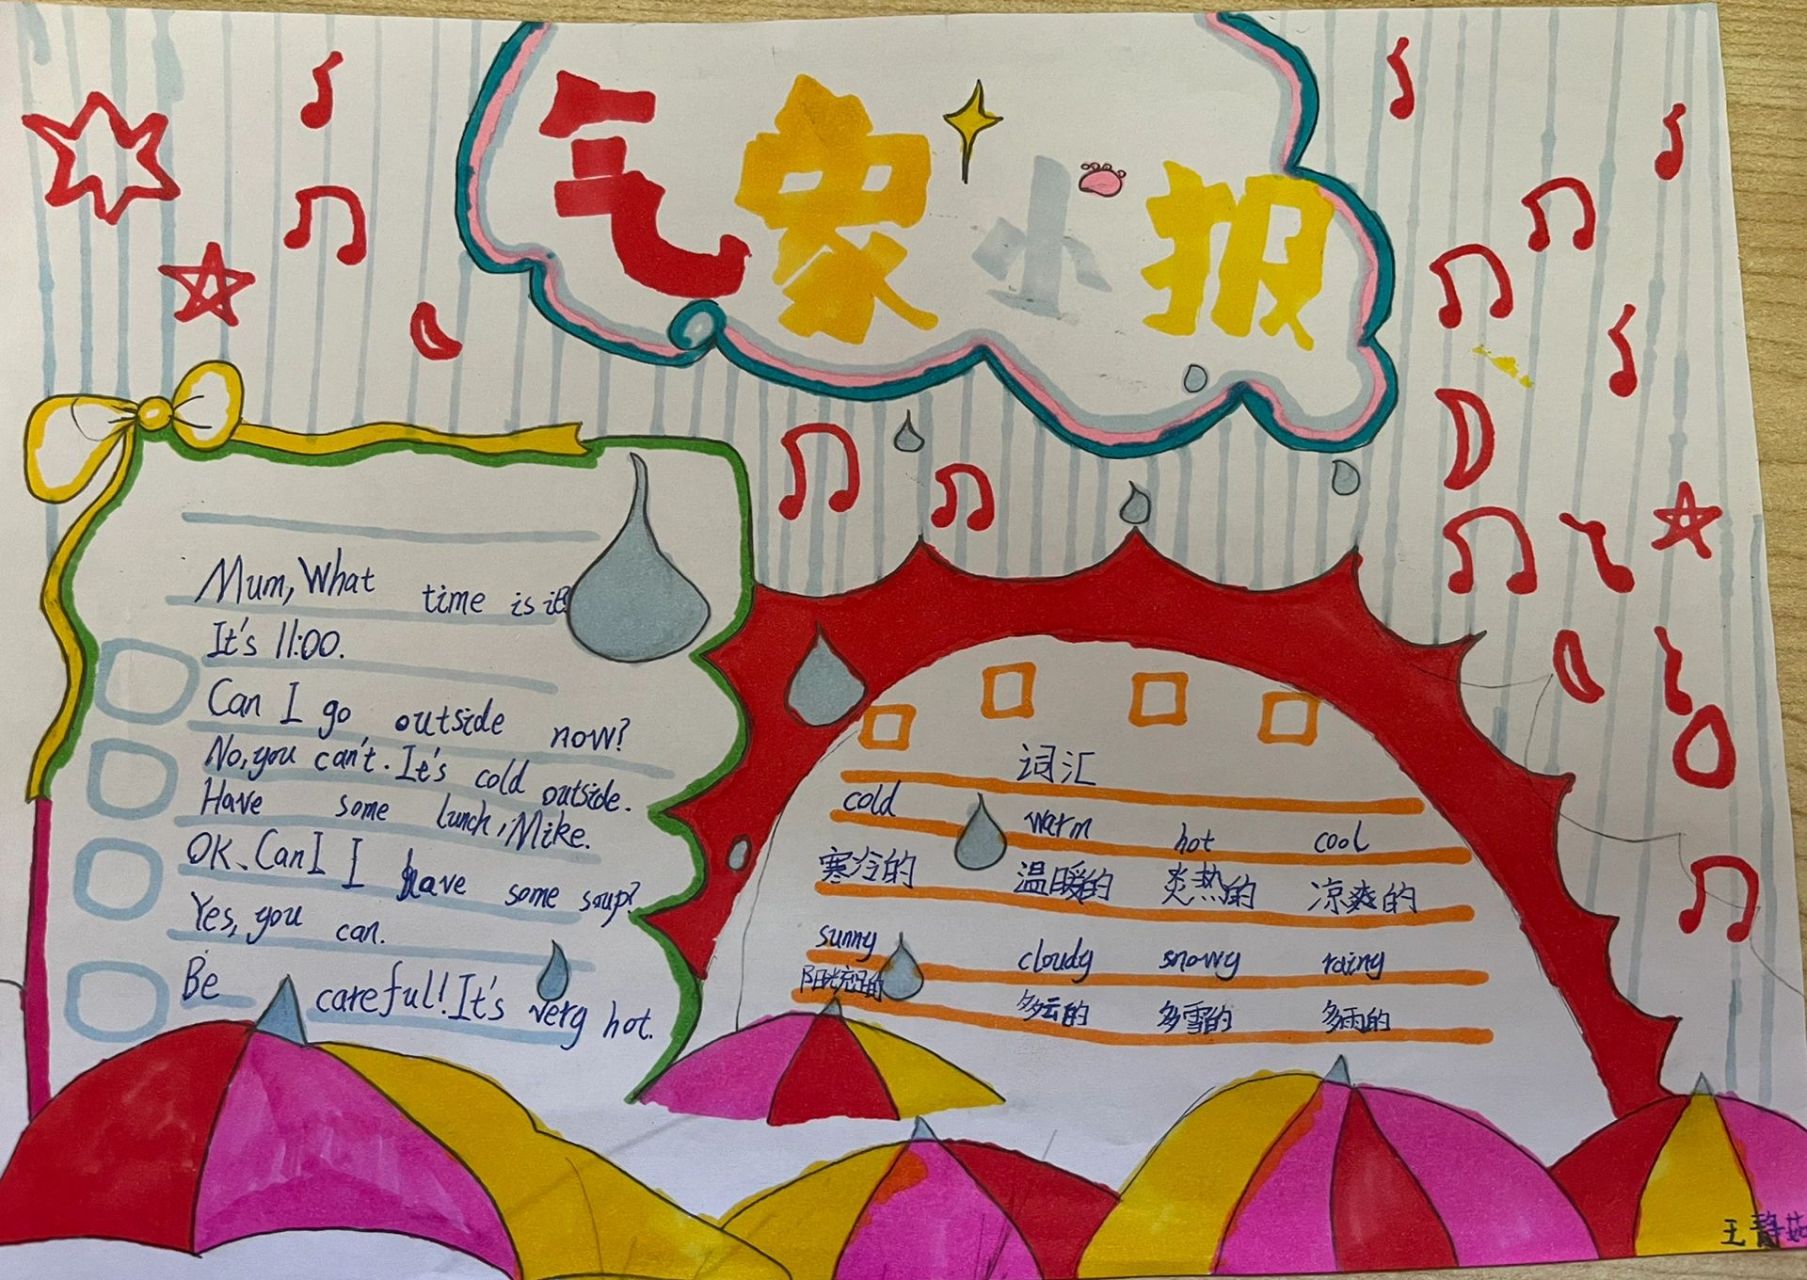 气象小报
Mum, What time is it?
It's 11:00.
Can I go outside now?
No, you can't. It's cold outside.
Have some lunch, Mike.
OK、Can I I have some soup?
Yes, you can.
Be careful! It's very hot.
词汇
cold warm hot cool
寒冷的 温暖的 炎热的 凉爽的
sunny cloudy snowy rainy
阳光充足的 多云的 多雪的 多雨的
王静茹